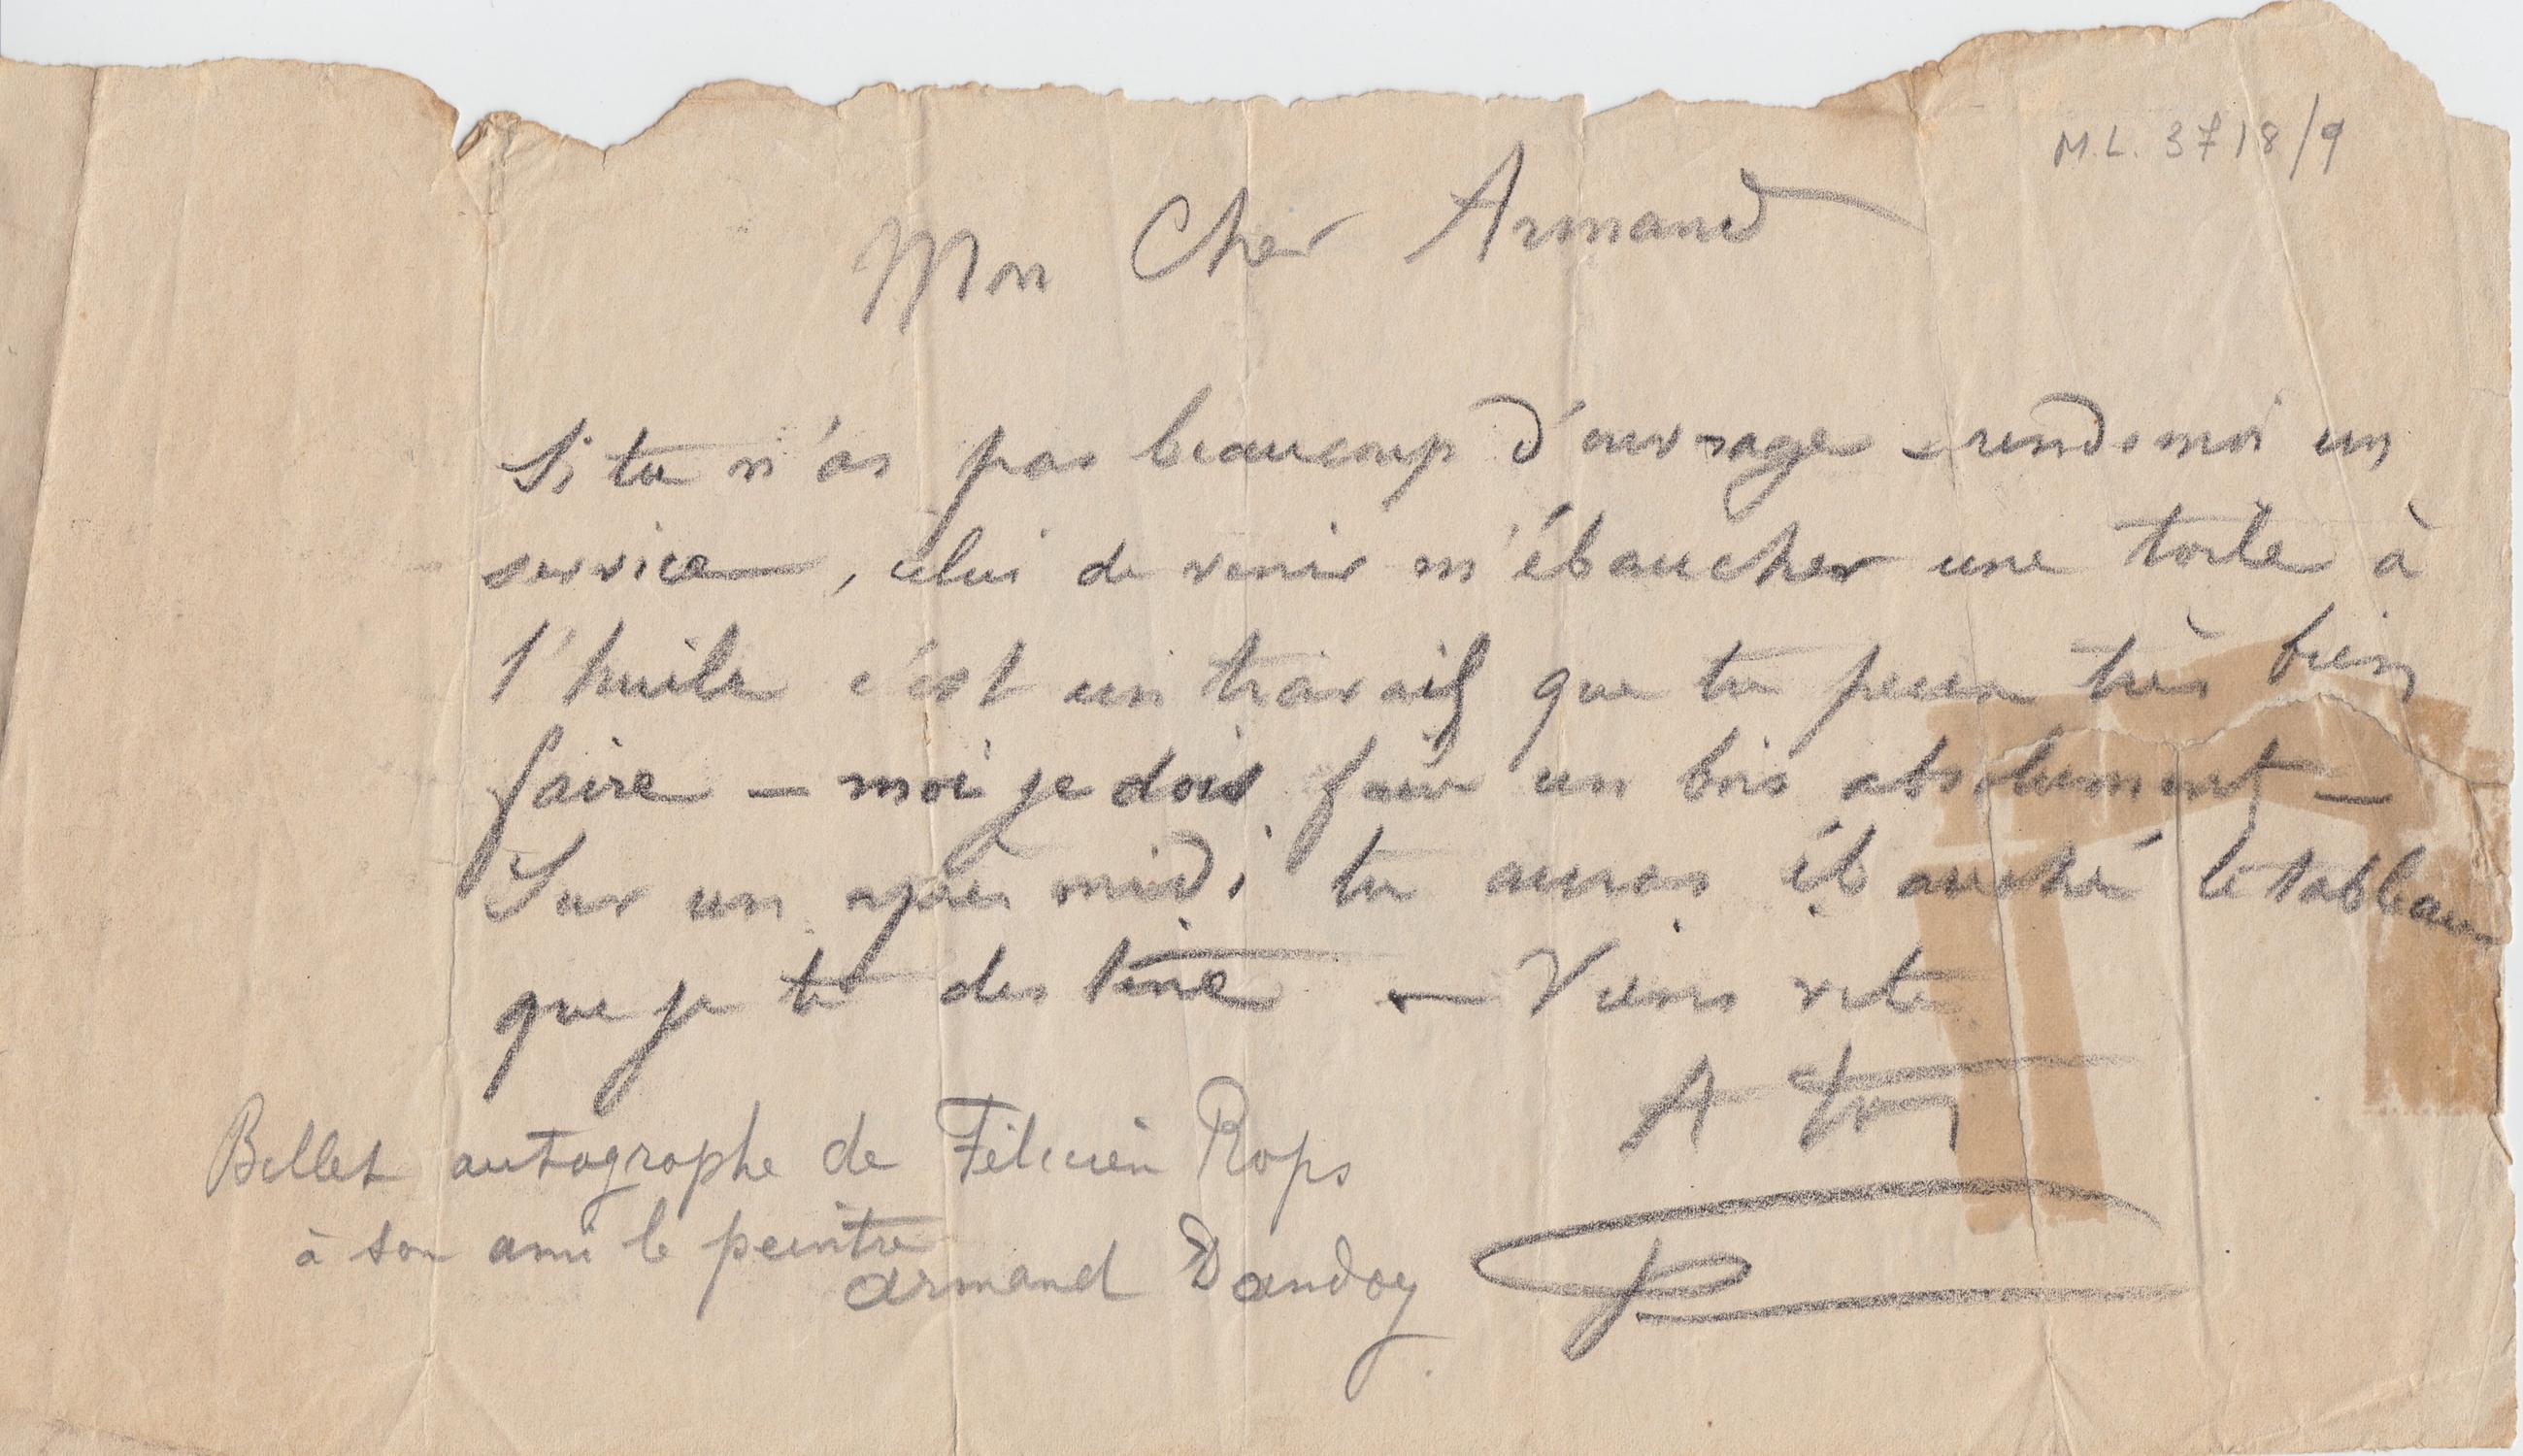 M.L. 3718/9
Mon Cher Armand
Si tu n'as pas beaucoup d'ouvrage – rends moi un
service, celui de venir m'ébaucher une toile à
l'huile c'est un travail que tu peux très bien
faire – moi je dois faire un bois absolument –
Sur un après midi tu auras ébauché le tableau
que je te destine – Viens vite
A toi
Billet autographe de Félicien Rops
à son ami le peintre
Armand Dandoy